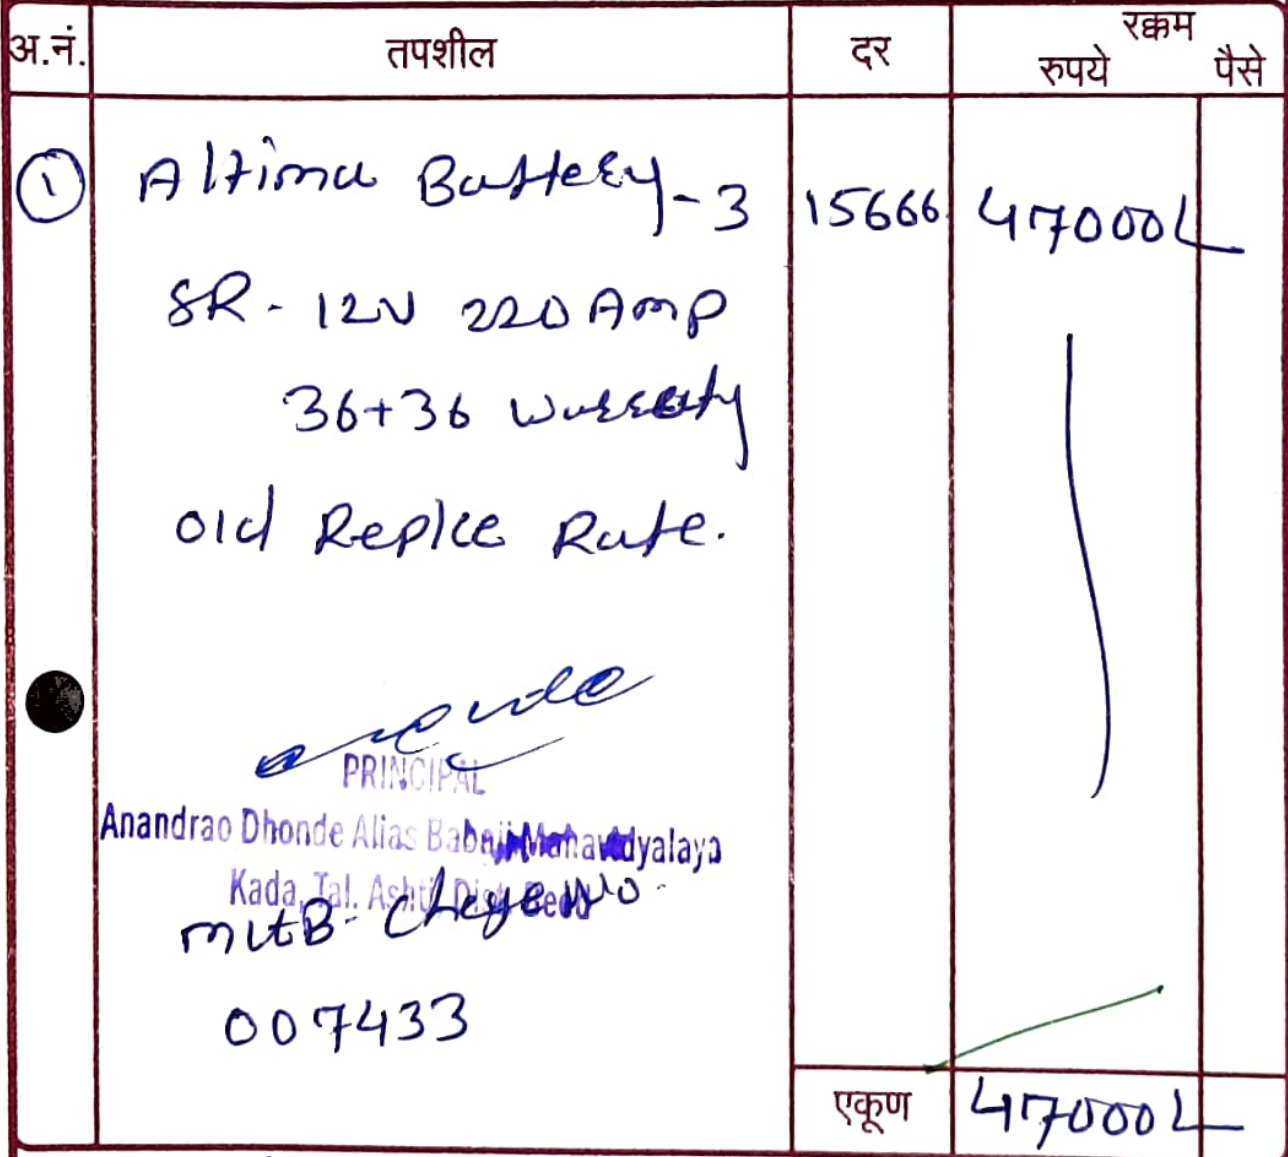 अ.नं. तपशील दर रक्कम
रुपये पैसे
१ Altima Battery - 3 15666 47000/-
SR - 12V 220 Amp
36+36 Warranty
Old Replce Rate.
PRINCIPAL
Anandrao Dhonde Alias Babaji Mahavidyalaya
Kada, Tal. Ashti, Dist. Beed
No.
007433
एकूण 47000/-